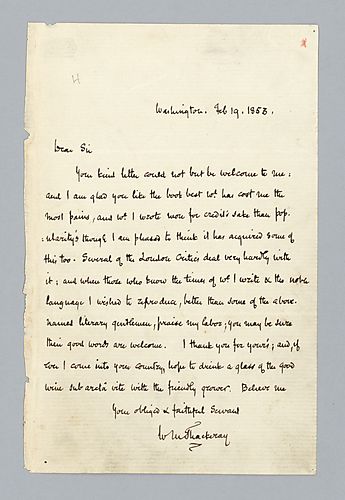 H
Washington. Feb 19. 1853.
Dear Sir
Your kind letter could not but be welcome to me:
and I am glad you like the book best wh. has cost me the
most pains, and wh. I wrote more for credit's sake than pop-
ularity's though I am pleased to think it has acquired some of
this too. Several of the London Critics deal very hardly with
it; and when those who know the times of wh. I write & the noble
language I wished to reproduce, better than some of the above-
named literary gentlemen, praise my labor; you may be sure
their good words are welcome. I thank you for yours; and, if
ever I come into your country, hope to drink a glass of the good
wine sub arctâ vite with the friendly grower. Believe me
Your obliged & faithful Servant
W M Thackeray